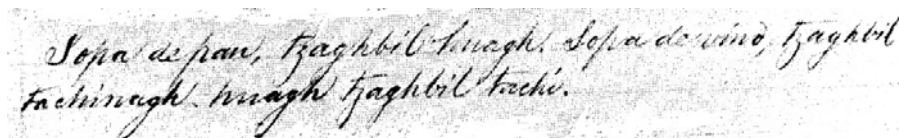 Sopa de pan, tzaghbil huagh. Sopa de vino, tzaghbil
tachinagh huagh tzaghbil tachi.